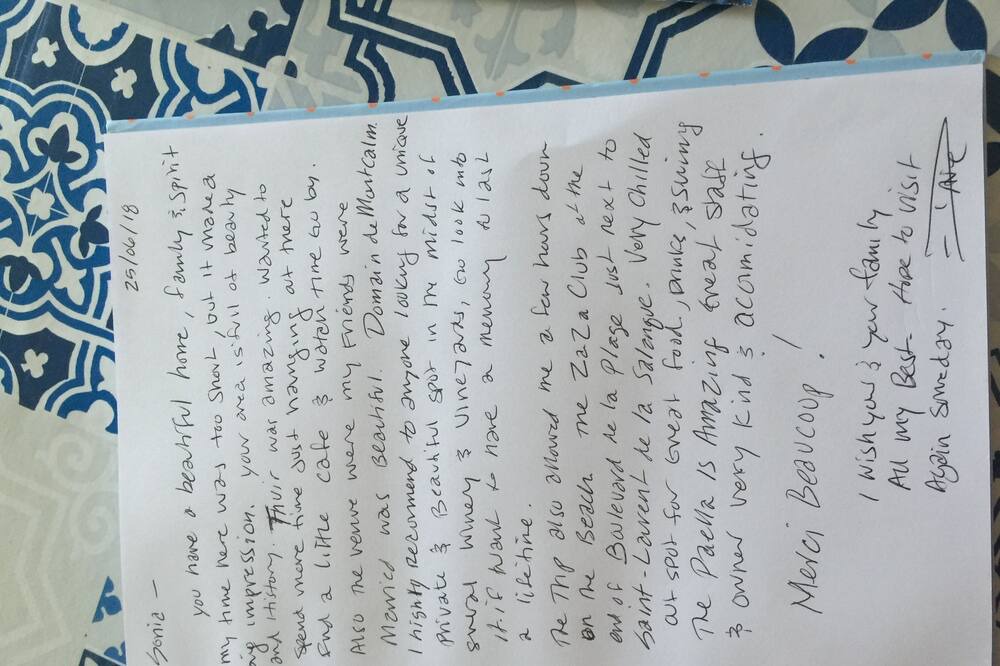 25/06/18
Sonia —
you have a beautiful home, family & Spirit
my time here was too short, but it made a
ing impression. your area is full of beauty
and History. Thuir was amazing. wanted to
spend more time just hanging out there
find a little cafe & watch time go by.
Also the venue were my friends were
Married was Beautiful. Domain de Montcalm.
I highly recommend to anyone looking for a unique
private & Beautiful spot in the midst of
several winery & vineyards, Go look into
it. if want to have a memory to last
a lifetime.
The Trip also allowed me a few hours down
on the Beach. The ZaZa Club at the
end of Boulevard de la Plage just next to
Saint-Laurent de la Salanque. Very Chilled
out spot for Great food, Drinks, & Swimg
The Paella is Amazing Great staff
& owner very kind & accomidating.
Merci Beaucoup!
I wish you & your family
All my Best. Hope to visit
Again Someday.